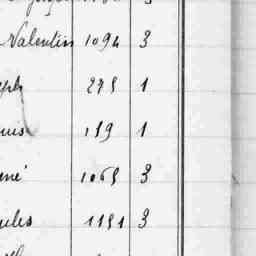 Valentin 1094 3
eph 275 1
ius 159 1
ené 1065 3
ules 1151 3